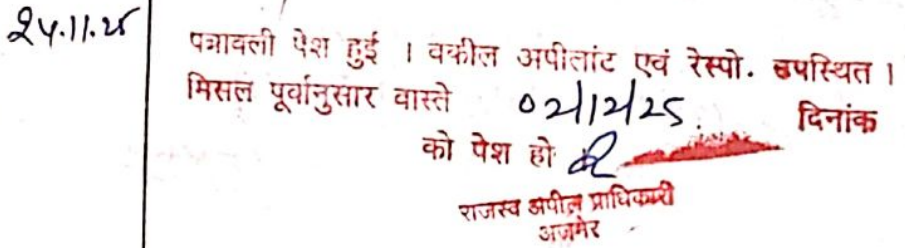 24.11.25
पत्रावली पेश हुई । वकील अपीलांट एवं रेस्पो. उपस्थित ।
मिसल पूर्वानुसार वास्ते 02/12/25 दिनांक
को पेश हो
राजस्व अपील प्राधिकारी
अजमेर